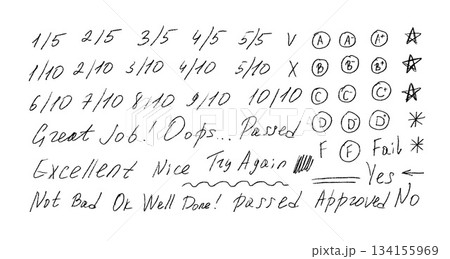 1/5 2/5 3/5 4/5 5/5 V A A- A+
1/10 2/10 3/10 4/10 5/10 X B B- B+
6/10 7/10 8/10 9/10 10/10 C C- C+
Great Job! Oops... Passed D D- D+
Excellent Nice Try Again F F Fail
Yes
Not Bad Ok Well Done! passed Approved No
PIXTA
134155969